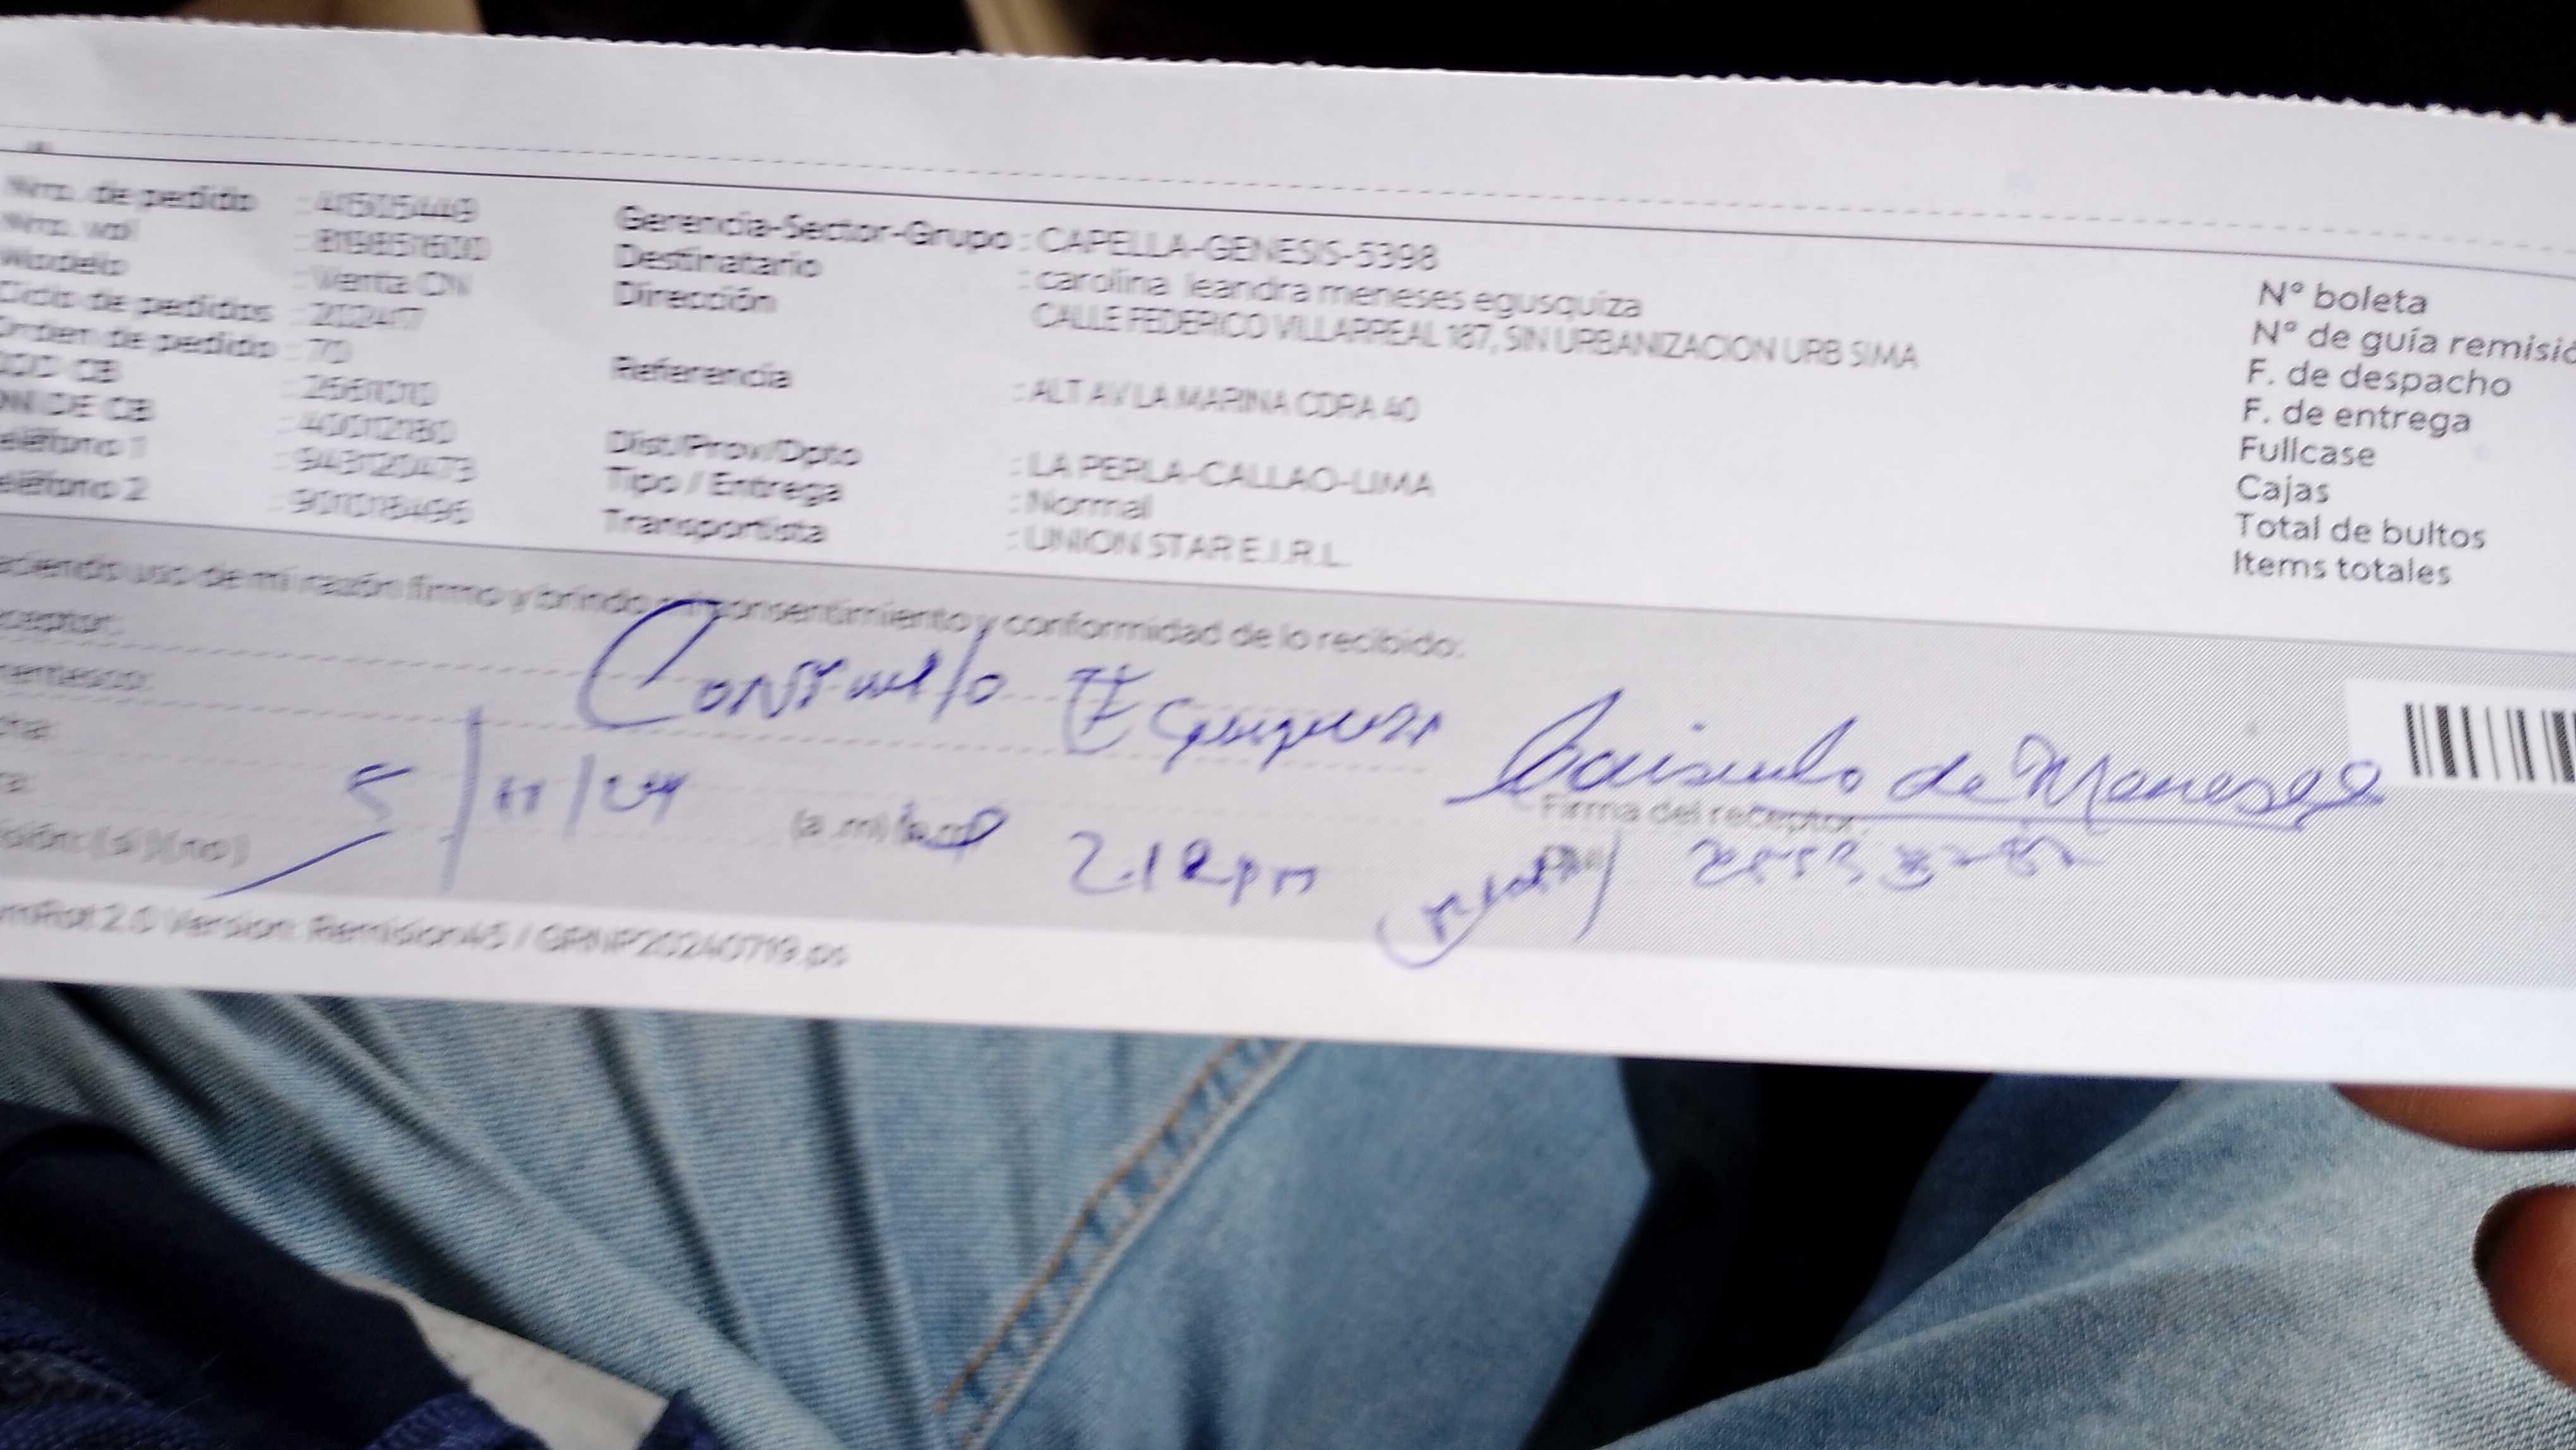 Nro. de pedido : 41505449
Nro. wol : 819851600
Modelo : Venta CN
Ciclo de pedidos : 202417
Orden de pedido : 70
COD CB : 2661010
DNI DE CB : 40012180
Teléfono 1 : 943120473
Teléfono 2 : 901018495
Gerencia-Sector-Grupo : CAPELLA-GENESIS-5398
Destinatario : carolina leandra meneses egusquiza
Dirección CALLE FEDERICO VILLARREAL 187, SIN URBANIZACION URB SIMA
Referencia : ALT AV LA MARINA CDRA 40
Dist/Prov/Dpto : LA PERLA-CALLAO-LIMA
Tipo / Entrega : Normal
Transportista : UNION STAR E.I.R.L.
N° boleta
N° de guía remisió
F. de despacho
F. de entrega
Fullcase
Cajas
Total de bultos
Items totales
aciendo uso de mi razón firmo y brindo mi consentimiento y conformidad de lo recibido:
ceptor:
Consuelo
de Meneses
Firma del receptor:
5/11/24
(a.m)
2.12 pm
(si)(no)
2.0 Version: Remision45 / GRNP20240719.ps